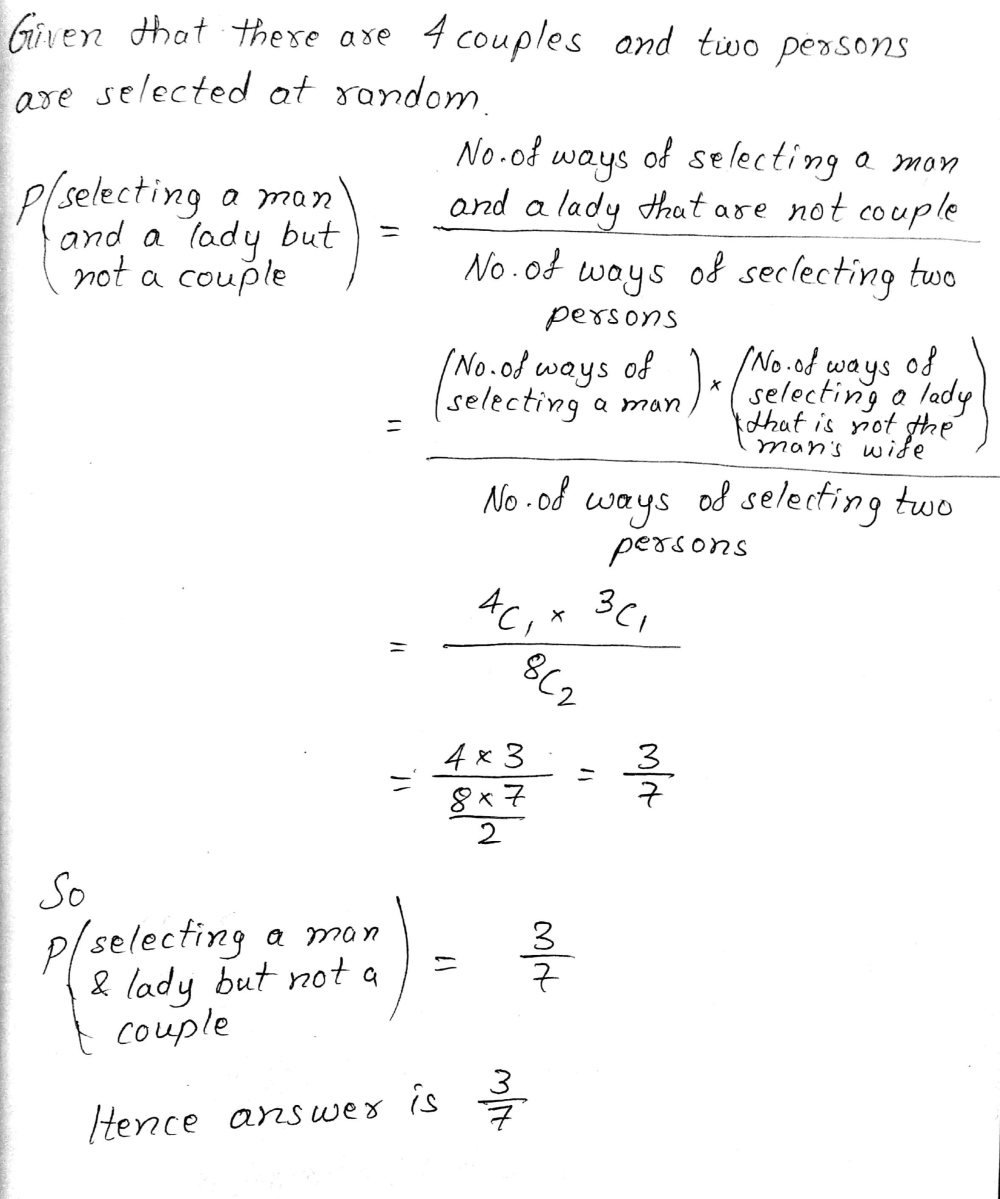 Given that there are 4 couples and two persons
are selected at random.
P(selecting a man and a lady but not a couple) = No. of ways of selecting a man and a lady that are not couple / No. of ways of seclecting two persons
= (No. of ways of selecting a man) × (No. of ways of selecting a lady that is not the man's wife / No. of ways of selecting two persons
= ⁴C₁ × ³C₁ / ⁸C₂
= 4 × 3 / (8 × 7 / 2) = 3/7
So
P(selecting a man & lady but not a couple) = 3/7
Hence answer is 3/7